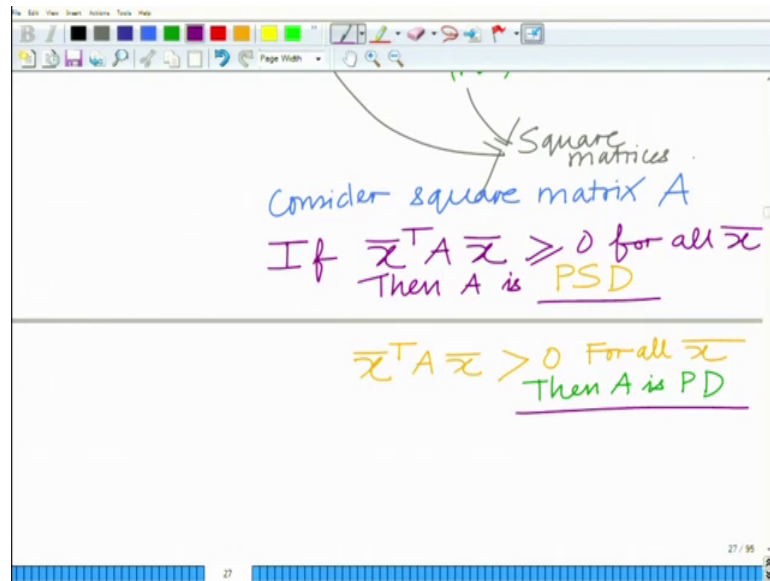 File Edit View Insert Actions Tools Help
B I
Page Width
Square
matrices
Consider square matrix A
If x̅ᵀ A x̅ ≥ 0 for all x̅
Then A is PSD
x̅ᵀ A x̅ > 0 For all x̅
Then A is PD
27 / 95
27